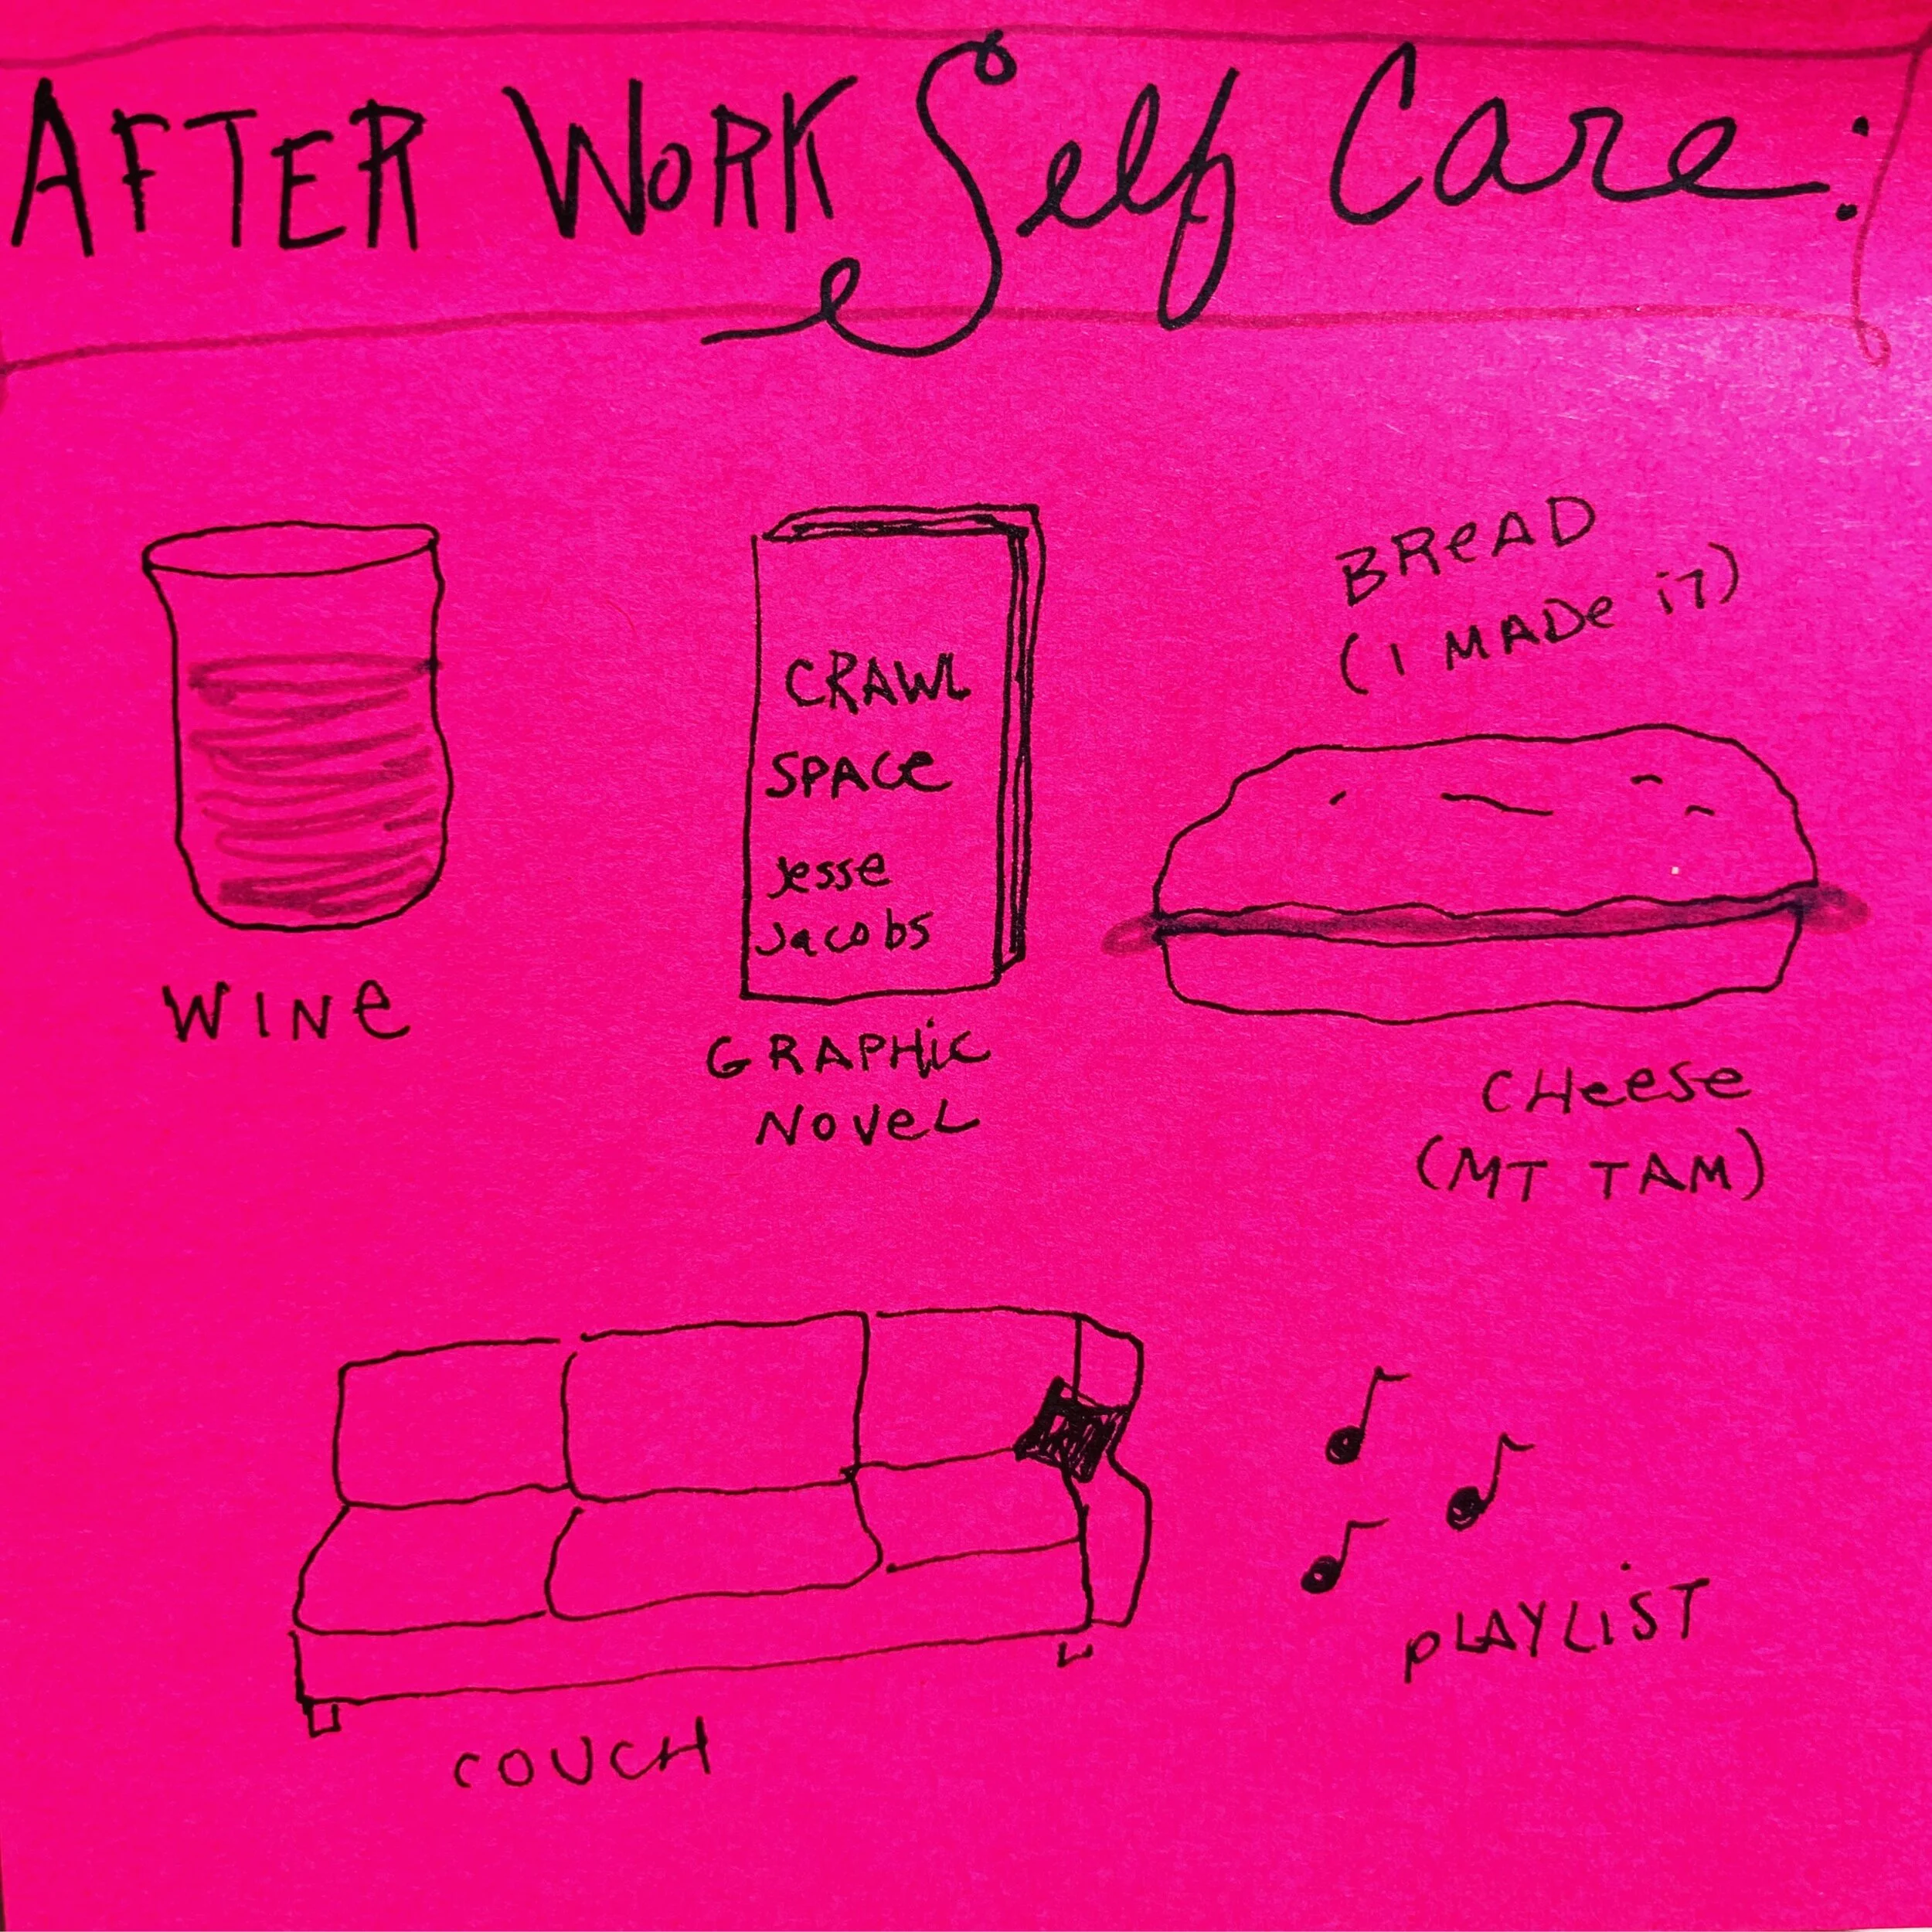 AFTER WORK Self Care:
WINE
CRAWL
SPACE
Jesse
Jacobs
GRAPHIC
NOVEL
BREAD
(I MADE iT)
CHEESE
(MT TAM)
COUCH
PLAYLIST